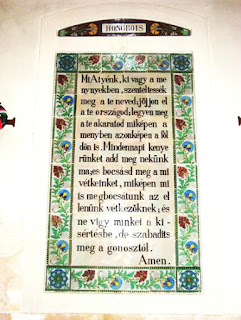 HONGROIS
Mi Atyénk, ki vagy a me
nynyekben, szenteltessék
meg a te neved; jöjjen el
a te országod; legyen meg
a te akaratod miképen a
menyben azonképen a föl
dön is. Mindennapi kenye
rünket add meg nekünk
ma; és bocsásd meg a mi
vétkeinket, miképen mi
is megbocsátunk az el
lenünk vétkezőknek; és
ne vigy minket a ki-
sértésbe, de szabadíts
meg a gonosztól.
Amen.